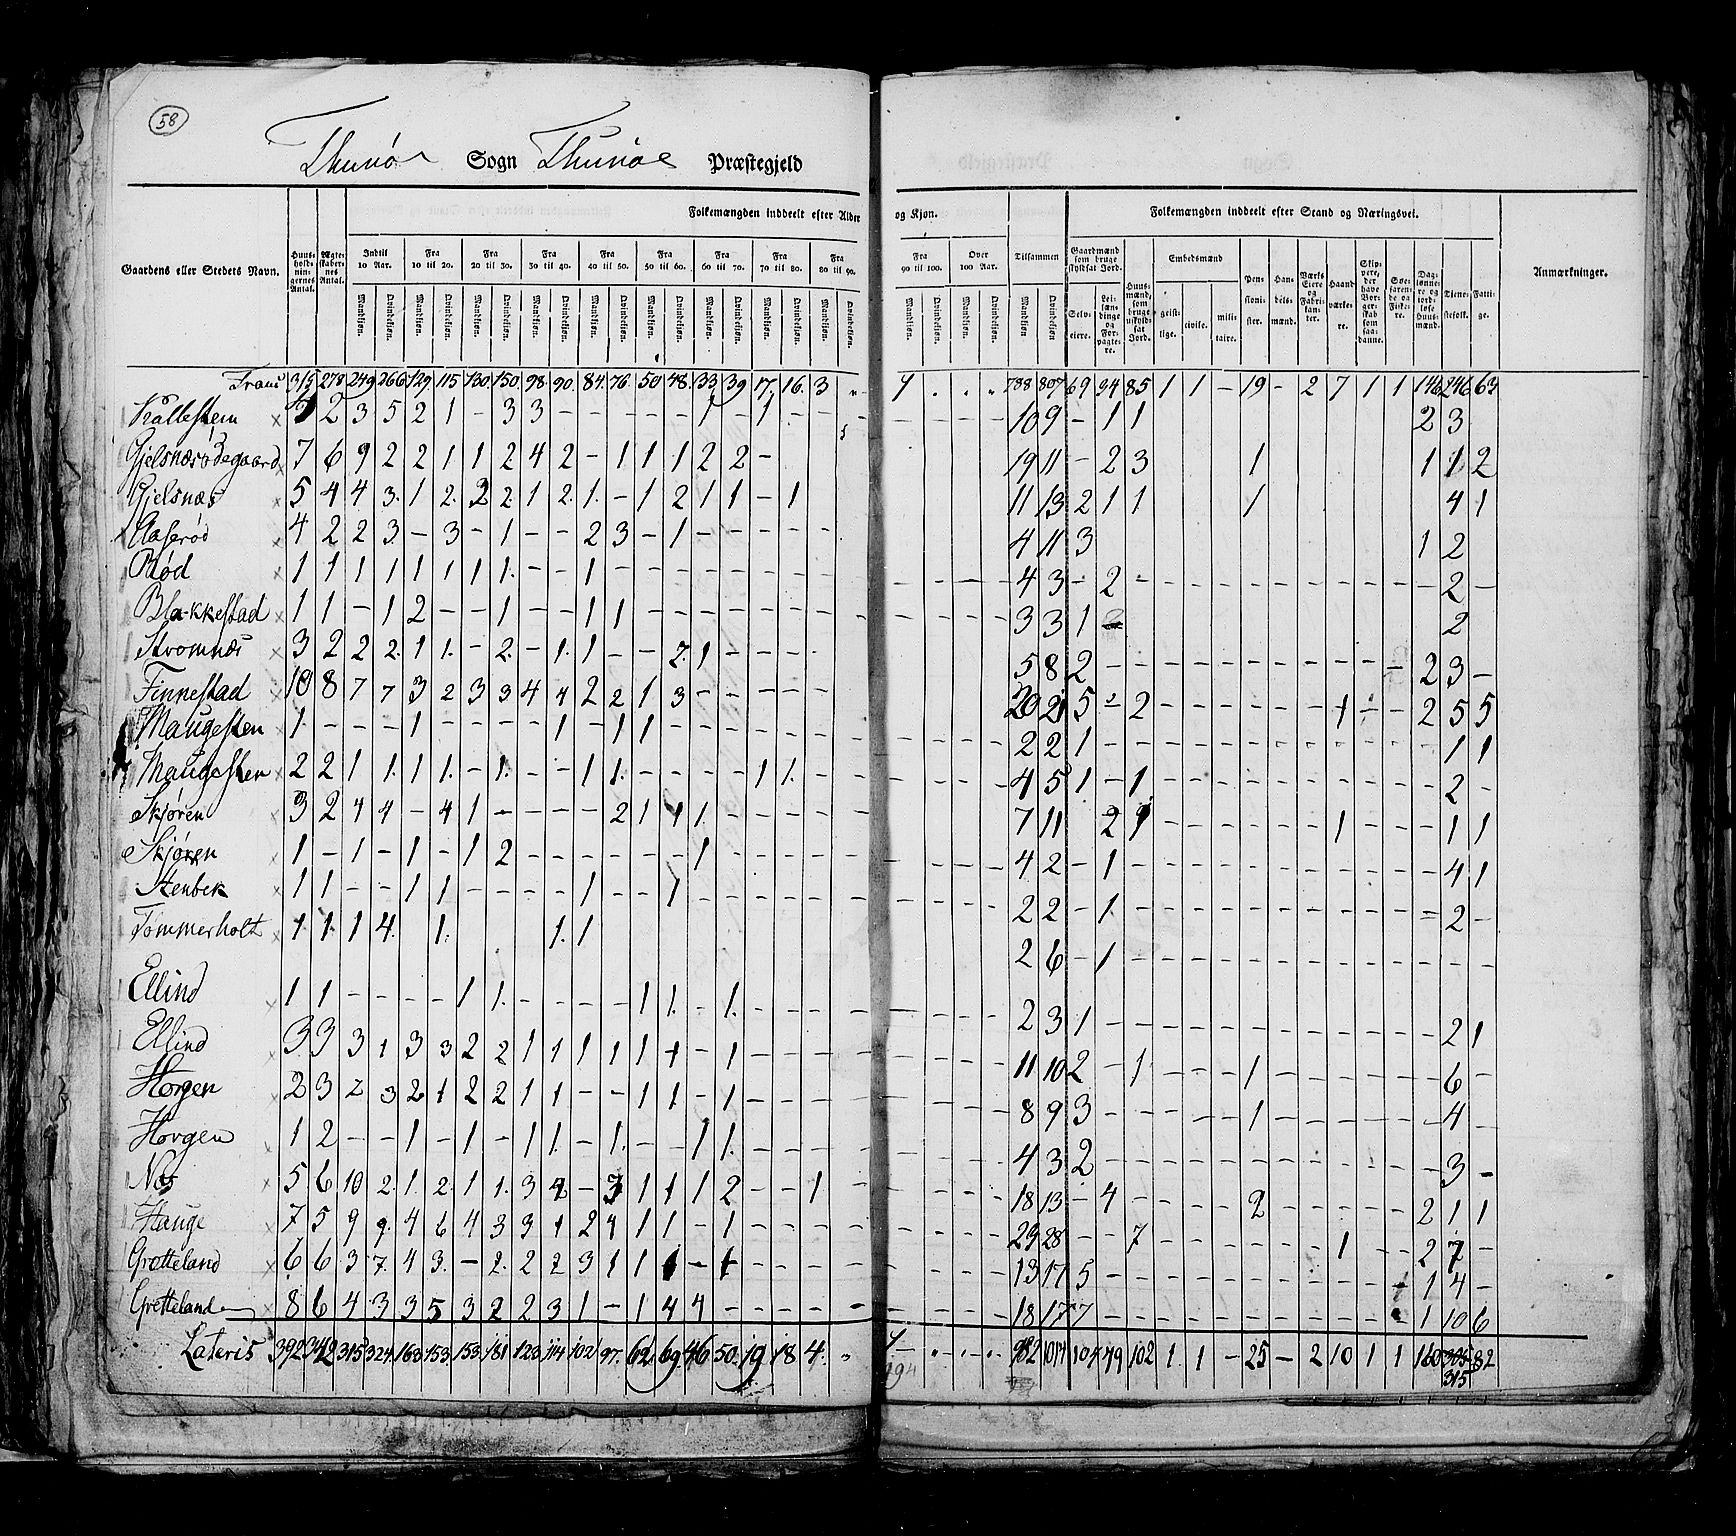 58
Thunøe Sogn Thunøe Præstegjeld
Folkemængden inddeelt efter Alder og Kjøn. Folkemængden inddeelt efter Stand og Næringsvei.
Gaardens eller Stedets Navn. Huus-hold-nin-gernes Antal. Ægte-skaber-nes Antal. Indtil 10 Aar. Fra 10 til 20. Fra 20 til 30. Fra 30 til 40. Fra 40 til 50. Fra 50 til 60. Fra 60 til 70. Fra 70 til 80. Fra 80 til 90. Fra 90 til 100. Over 100 Aar. Tilsammen Gaardmænd som bruge skyldsat Jord. Huus-mænd, som bruge uskyld-sat Jord. Embedsmænd Pen-sioni-ster. Han-dels-mænd. Værks Eiere og Fabri-kanter. Haand-værke-re. Skip-pere, der have Bor-ger-skab som saa-danne. Søe-farende og Fiske-re. Dag-lønne-re og jord-løse Huus-mænd. Tjene-stefolk. Fatti-ge. Anmærkninger.
Mandkjøn. Qvindekjøn. Selv-eiere. Lei-lændinge og For-pagte-re. geist-lige. civile. mili-taire.
Trans 315 278 249 266 129 115 130 150 98 90 84 76 50 48 33 39 17 16 3 " 1 788 807 69 94 85 1 1 - 19 - 2 7 1 1 146 246 63
Kallestem 3 2 3 5 2 1 - 3 3 - - - - - 1 - 1 - - 10 9 - 1 1 2 3
Gjelsnæsødegaard 7 6 9 2 2 1 1 2 4 2 - 1 1 1 2 2 - 19 11 - 2 3 1 1 1 2
Gjelsnæs 5 4 4 3 1 2 2 2 1 2 1 - 1 2 1 1 - 1 11 13 2 1 1 1 4 1
Aaserød 4 2 2 3 - 3 - 1 - - 2 3 - 1 - - - - - 4 11 3 1 2
Rød 1 1 1 1 1 1 1 1 - - 1 - - - - - - - - 4 3 - 2 - 2 -
Blakkestad 1 1 - 1 2 - - 1 - - 1 1 - - - - - - - 3 3 1 2
Stromnæs 3 2 2 2 1 1 - 2 - 1 1 - - 2 1 - - - - 5 8 2 2 3 -
Finnestad 10 8 7 7 3 2 3 3 4 4 2 2 1 3 - - - - - 20 21 5 - 2 1 2 5 5
Maugesten 1 - - - 1 - - - - 1 - 1 1 - - - - - - 2 2 1 1 1
Maugesten 2 2 1 1 1 1 - 1 - - 1 1 - - - - 1 1 - 4 5 1 - 1 2 -
Skjøren 3 2 4 4 - 4 1 - - - - 2 1 1 1 - 7 11 2 1 1 1
Skjøren 1 - 1 - 1 - 1 2 - - - - - - 1 - - - - 4 2 - 1 4 1
Stenbek 1 1 - - 1 1 - - - - 1 - - 1 - - - - - 2 2 - 1 2 -
Tømmerholt 1 1 1 4 1 1 1 2 6 - 1
Ellind 1 1 - - - - 1 1 - - - - 1 1 - 1 - - - 2 3 1 2 1
Ellind 3 3 3 1 3 3 2 2 1 1 1 1 1 1 - 1 - - - 11 10 2 - 1 1 6 -
Horgen 2 3 2 3 2 1 2 2 1 1 - - 1 1 - 1 - - - 8 9 3 1 4 -
Horgen 1 2 - - 1 - 1 - 1 1 - 1 - - 1 1 - - - 4 3 2 3 -
Næs 5 6 10 2 1 2 1 1 3 4 - 3 1 1 1 2 - - 1 18 13 - 4 2 2 1 1
Hauge 7 5 9 9 4 6 4 3 3 1 2 4 1 1 - 1 - - - 29 28 - - 7 1 2 7 -
Grotteland 6 6 3 7 4 3 - 2 2 2 3 1 1 1 - 1 - - - 13 17 5 1 4 -
Gretteland 8 6 4 3 3 5 3 2 2 3 1 - 1 4 4 - - - - 18 17 7 1 10 6
Lateris 392 342 315 324 163 153 153 181 123 114 102 97 62 69 46 50 19 18 4 " 1 982 1014 104 79 102 1 1 - 25 - 2 10 1 1 160 305 82
194 315